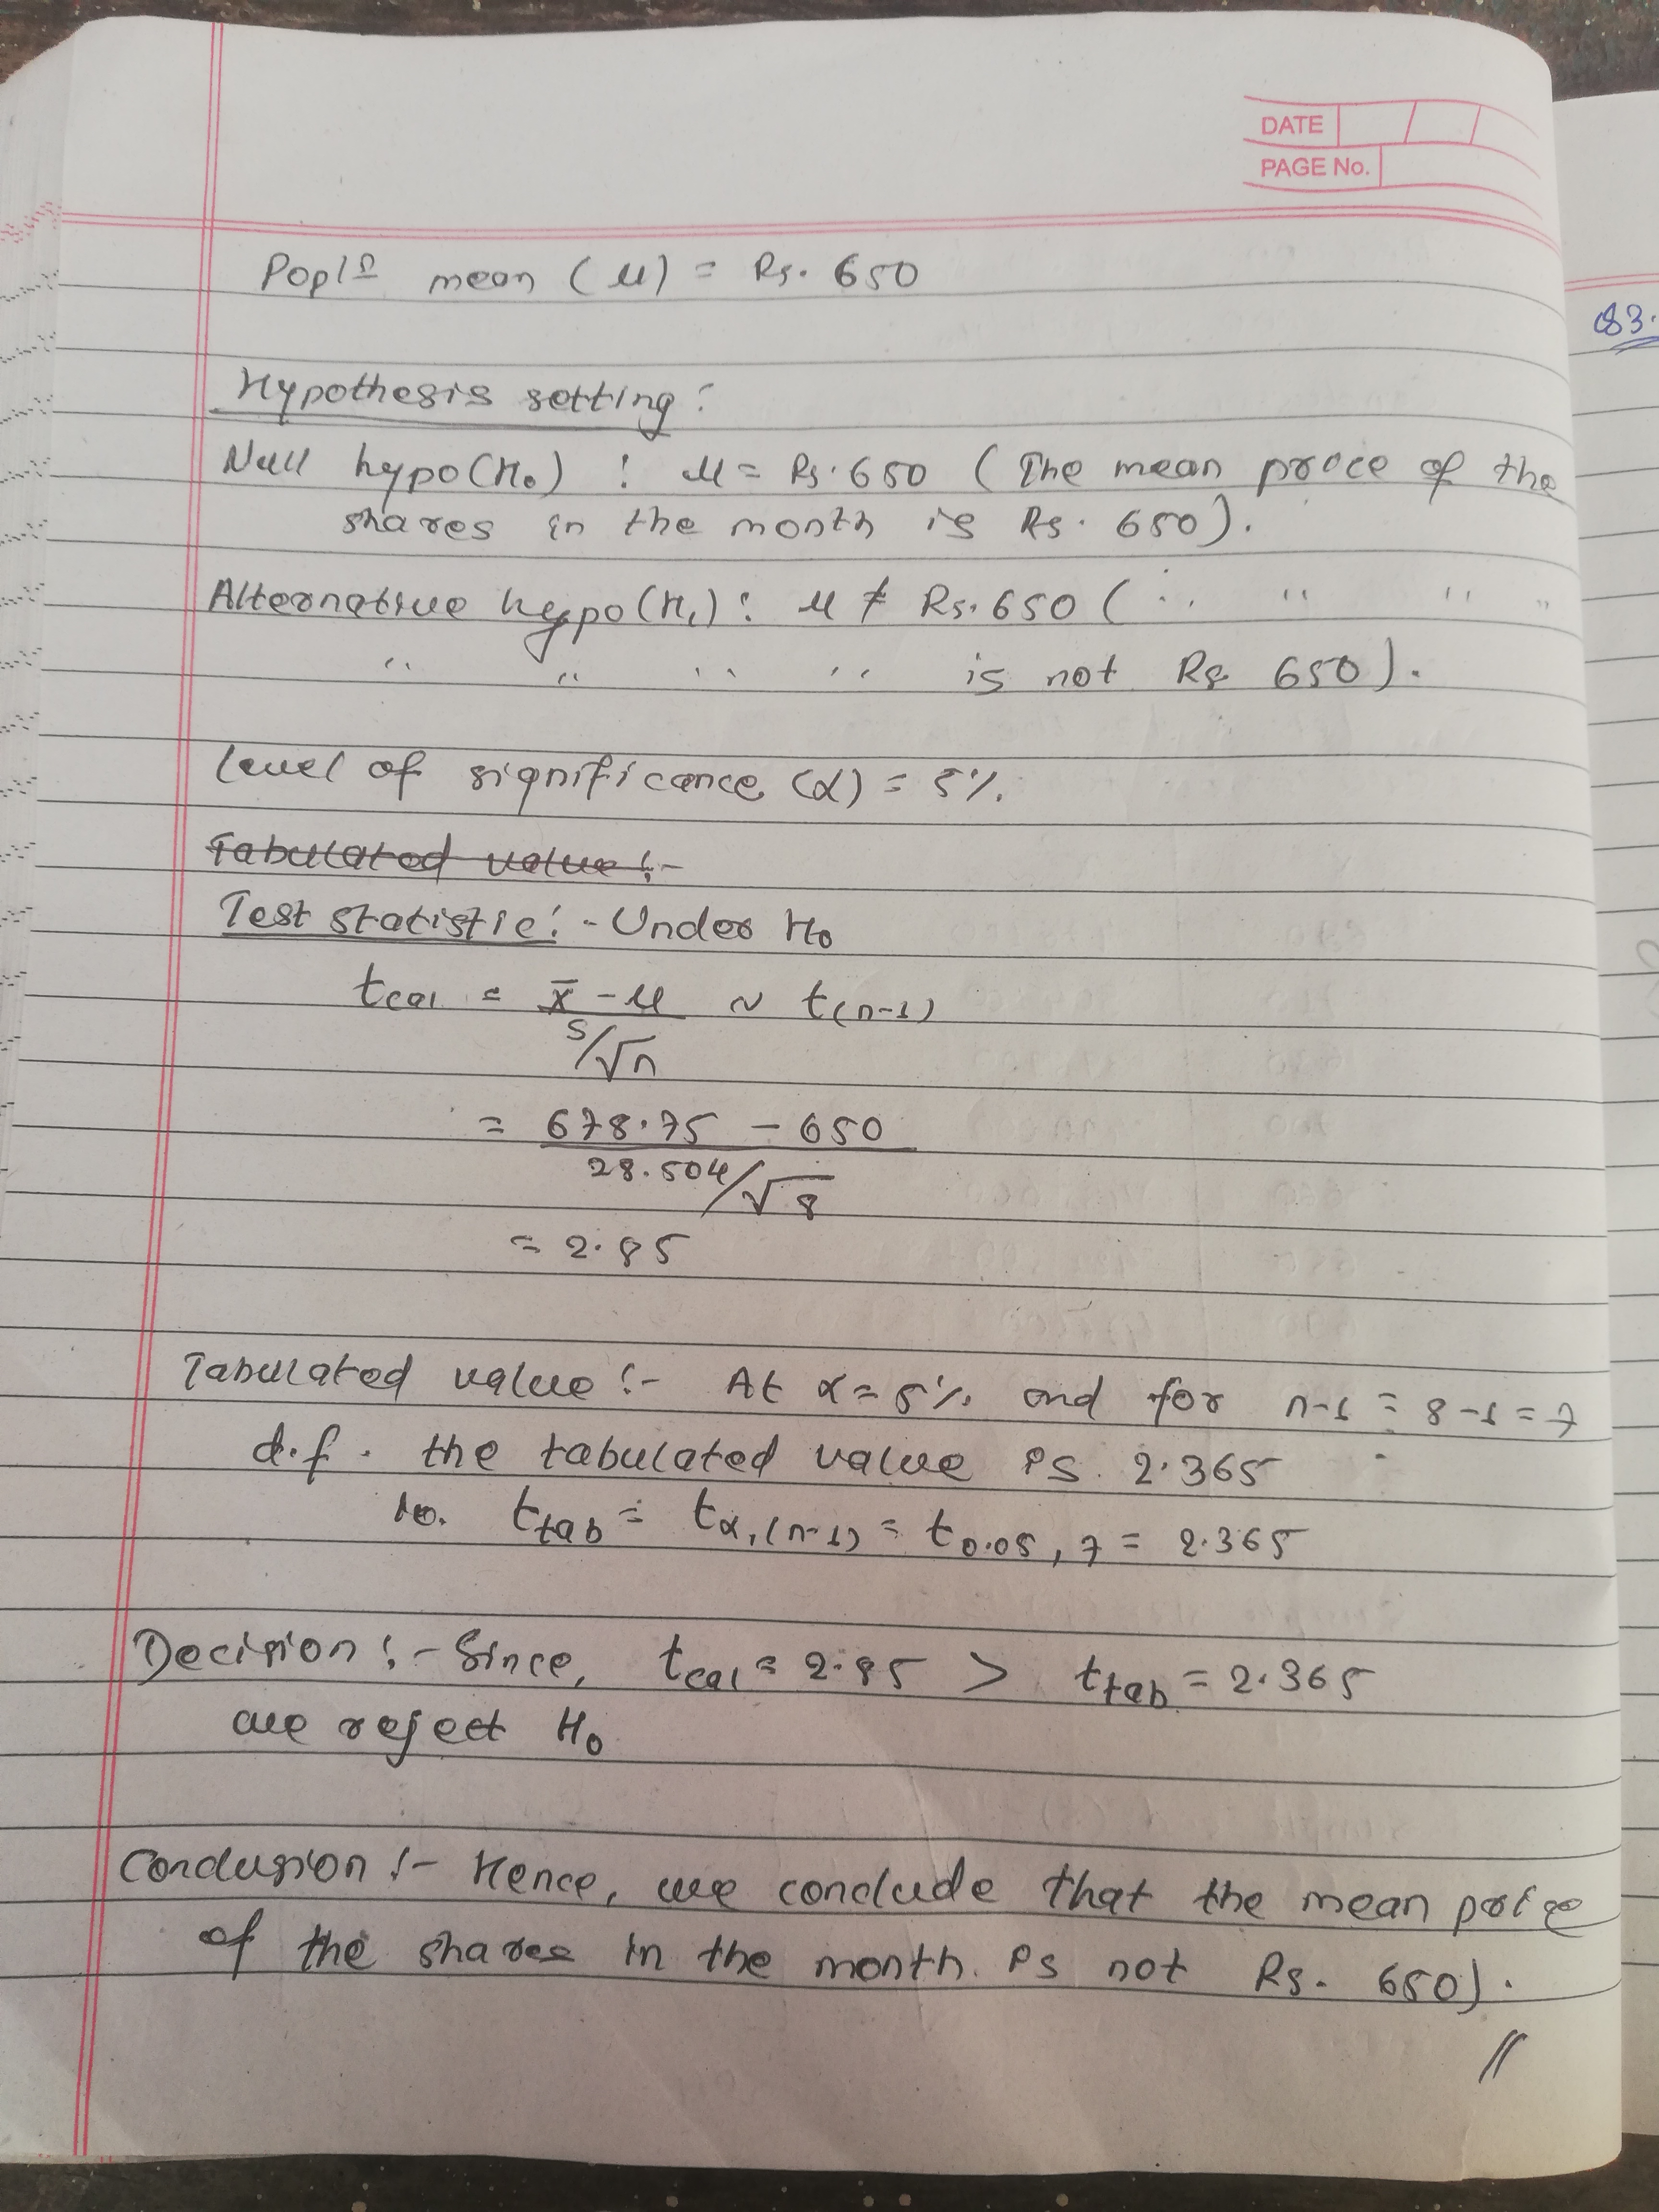 DATE
PAGE No.
Poplⁿ mean (μ) = Rs. 650
Q3.
Hypothesis setting :
Null hypo(H₀) : μ = Rs. 650 (The mean price of the
shares in the month is Rs. 650).
Alternative hypo(H₁) : μ ≠ Rs. 650 ( " " " "
" " " " is not Rs. 650).
level of significance (α) = 5%.
Tabulated value :-
Test statistic :- Under H₀
t_cal = x̄ - μ ~ t(n-1)
s/√n
= 678.75 - 650
28.504/√8
= 2.85
Tabulated value :- At α = 5% and for n-1 = 8-1 = 7
d.f. the tabulated value is 2.365
ie. t_tab = t_α,(n-1) = t_0.05, 7 = 2.365
Decision :- Since, t_cal = 2.85 > t_tab = 2.365
we reject H₀
Conclusion :- Hence, we conclude that the mean price
of the shares in the month is not Rs. 650).